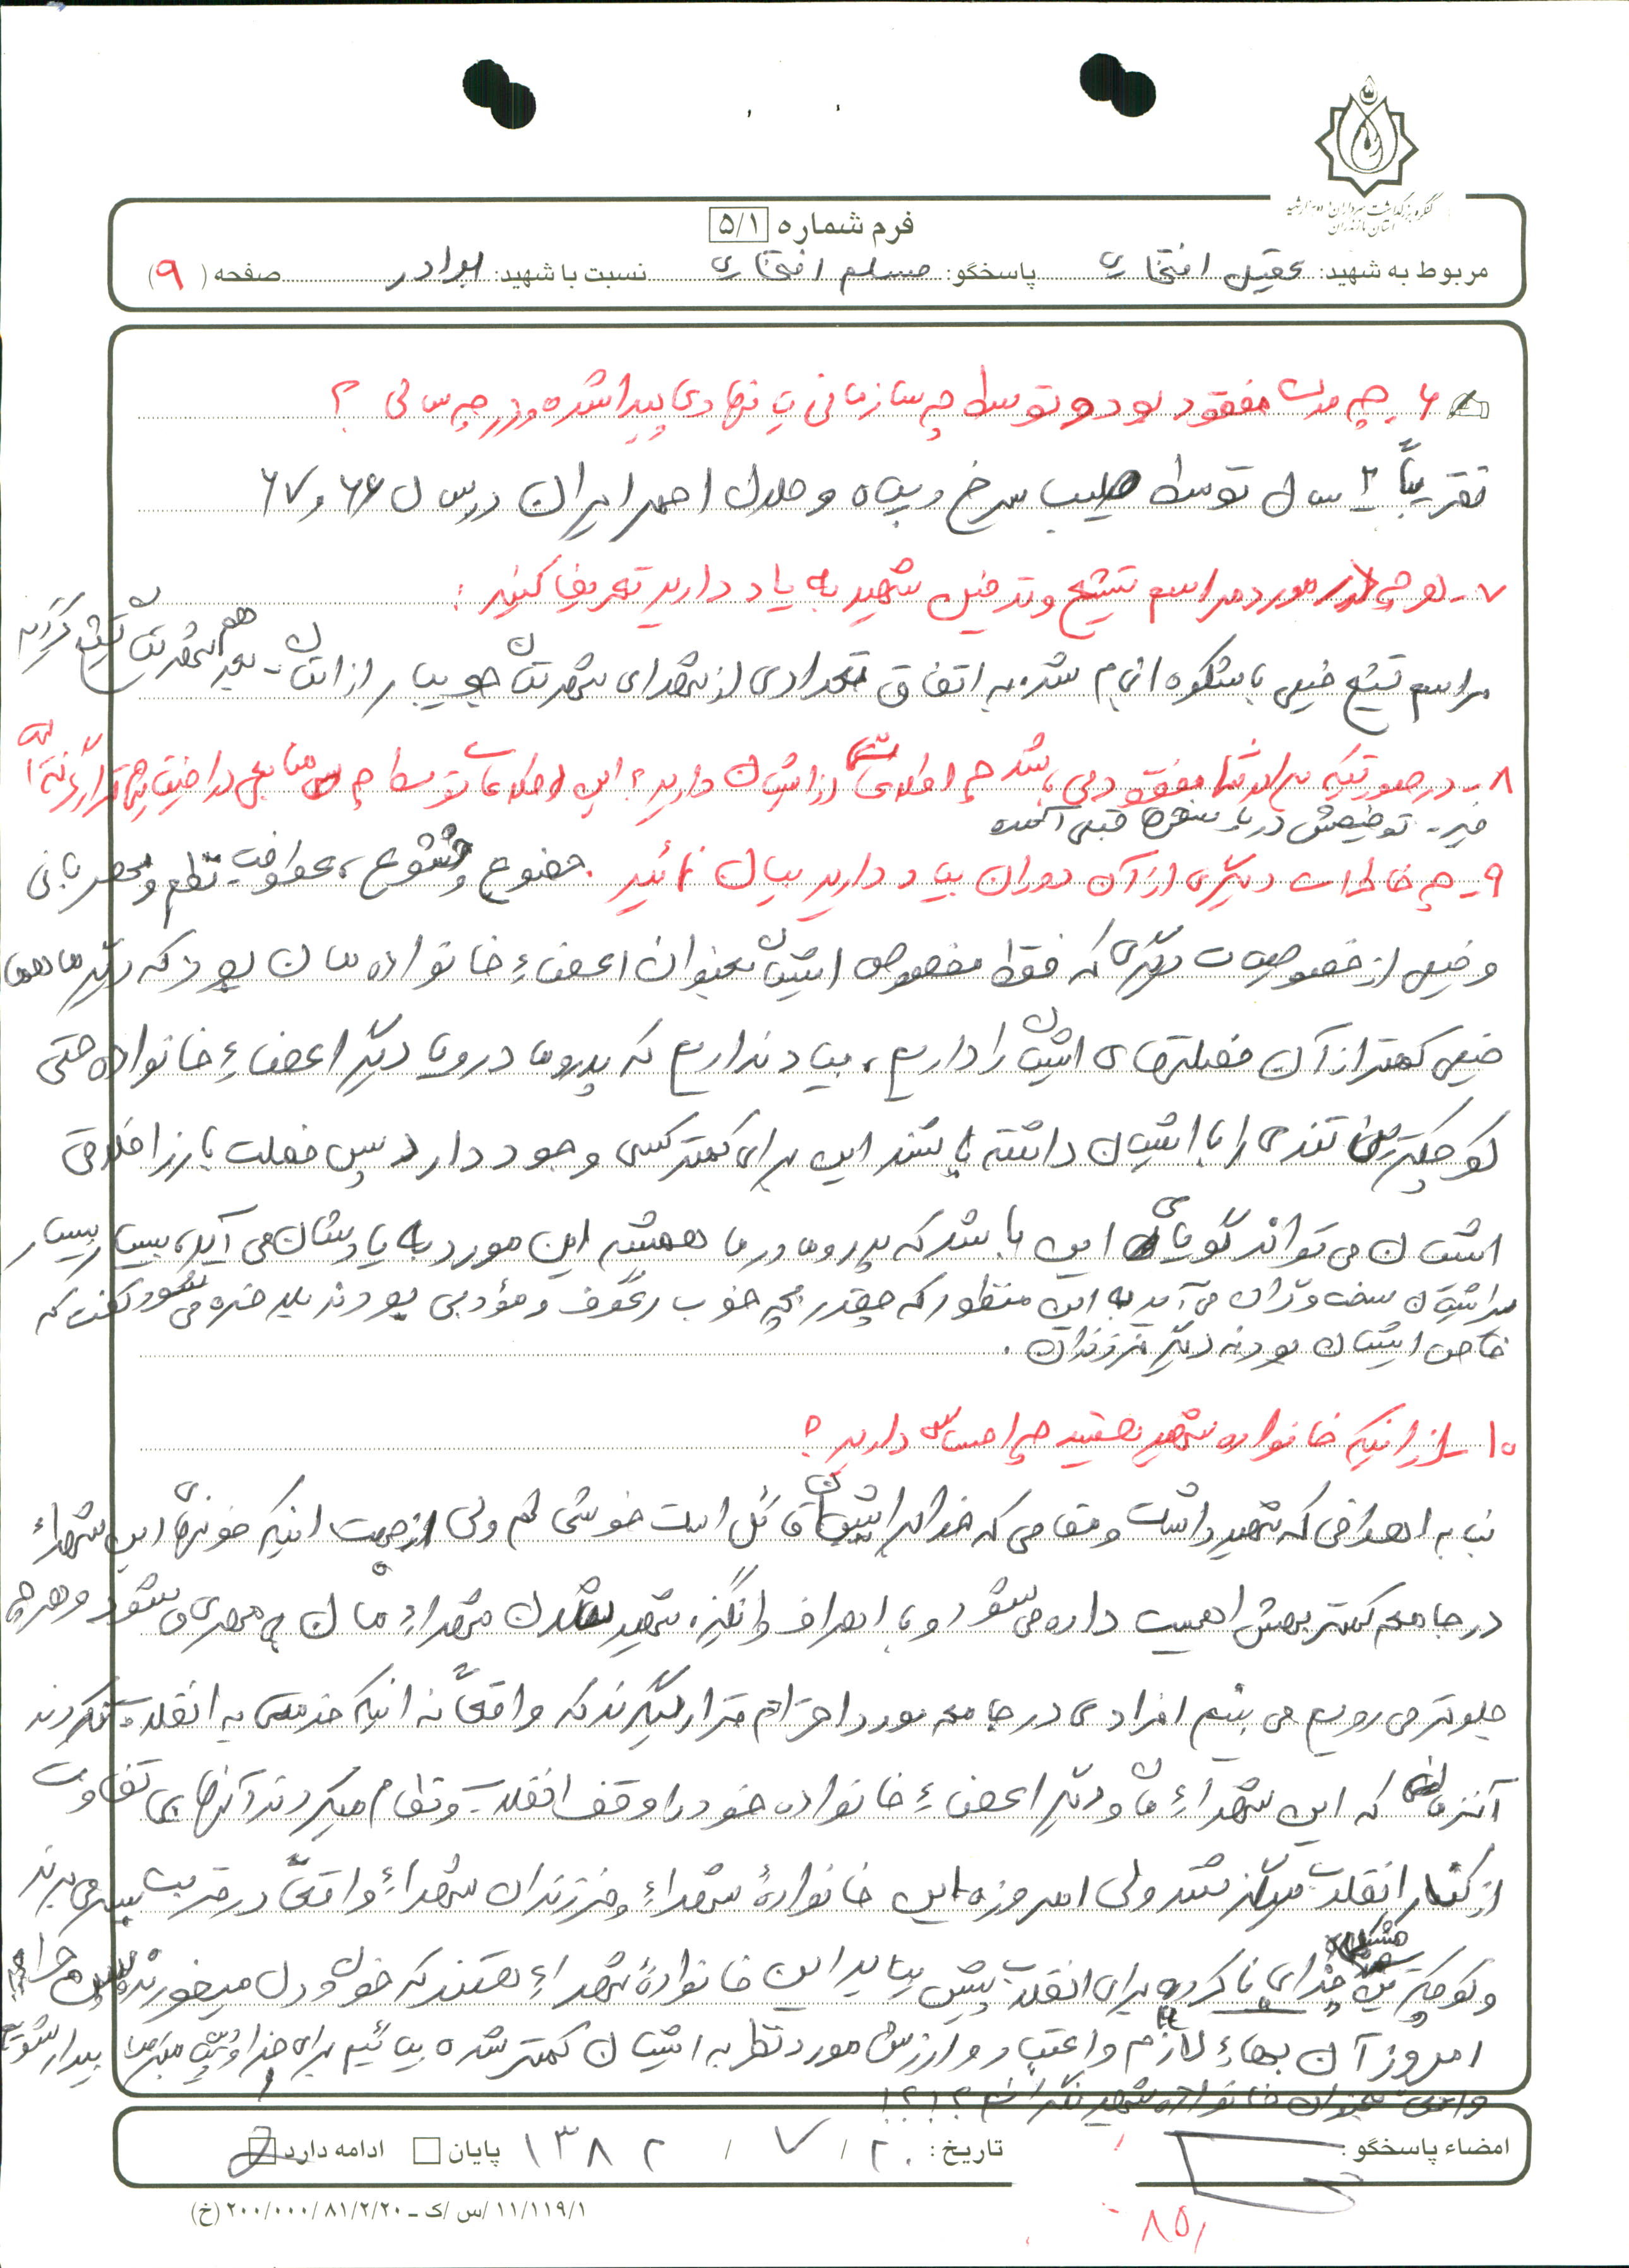 کنگره بزرگداشت سرداران و ده هزار شهید
استان مازندران
فرم شماره ۵/۱
مربوط به شهید: عقیل افتخاری پاسخگو: مسلم افتخاری نسبت با شهید: برادر صفحه (۹)
۶- چه مدت مفقود بود و توسط چه سازمانی یا نهادی پیدا شده و در چه سالی ؟
تقریباً ۲ سال توسط صلیب سرخ و سپاه و هلال احمر ایران در سال ۶۶ و ۶۷
۷- هر چه در مورد مراسم تشییع و تدفین شهید به یاد دارید تعریف کنید :
مراسم تشیع خیلی باشکوه انجام شد به اتفاق تعدادی از شهدای شهرستان جویبار از استان - بعد هم شهرستان تشیع کردند
۸- در صورتیکه برادر شما مفقود می باشد چه اطلاعاتی از ایشان دارید ؟ این اطلاعات توسط چه منابعی در اختیار شما قرار گرفته
خیر - توضیحش در صفحه قبلی آمده
۹- چه خاطرات دیگری از آن دوران بیاد دارید بیان نمائید . خضوع و خشوع ، عطوفت - نظم و مهربانی
و خیلی از خصوصیات دیگری که فقط مخصوص ایشان بعنوان اعضاء خانواده مان بود که دیگر ماها
خیلی کمتر از آن خصلتهای ایشان را داریم ، بیاد نداریم که پدر و مادر و یا دیگر اعضاء خانواده حتی
کوچکترین تندی را با ایشان داشته باشند این برای کمتر کسی وجود دارد پس خصلت بارز اخلاقی
ایشان می تواند گویای این باشد که پدر و مادر ما همیشه این مورد به یادشان می آید ، بسیار بسیار
بر ایشان سخت و گران می آید به این منظور که چقدر بچه خوب رئوف و مؤدبی بودند می شود گفت که
خاص ایشان بود نه دیگر فرزندان .
۱۰- از اینکه خانواده شهید هستید چه احساسی دارید ؟
بنا به اهدافی که شهید داشت و مقامی که خدا برای ایشان قائل است خوشحالم ولی از جهت اینکه خونهای این شهداء
در جامعه کمتر بهش اهمیت داده می شود و با اهداف و انگیزه شهید شدن شهداء مان بی مهری می شود و هر چه
جلوتر می رویم می بینیم افرادی در جامعه مورد احترام قرار میگیرند که واقعاً نه اینکه خدمتی به انقلاب نکردند
آنزمان که این شهداء ما و دیگر اعضاء خانواده خود را وقف انقلاب و نظام میکردند آنها بی تفاوت
از کنار انقلاب میگذشتند ولی امروزه این خانوادهٔ شهداء و فرزندان شهداء واقعاً در غربت بسر می برند
و کوچکترین مشکل خدای ناکرده برای انقلاب پیش بیاید این خانوادهٔ شهداء هستند که خون دل میخورند پس چرا
امروز آن بهاء لازم و اعتبار و ارزش مورد نظر به ایشان کمتر شده بیائیم برای خدا بیدار شویم
بعنوان خانواده شهید نگرانیم ؟!؟!
امضاء پاسخگو : تاریخ : ۲۰ / ۷ / ۱۳۸۲ پایان ادامه دارد
۱۱/۱۱۹/۱ /س /ک - ۲۰۰/۰۰۰/۸۱/۲/۲۰ (خ)
۸۵/